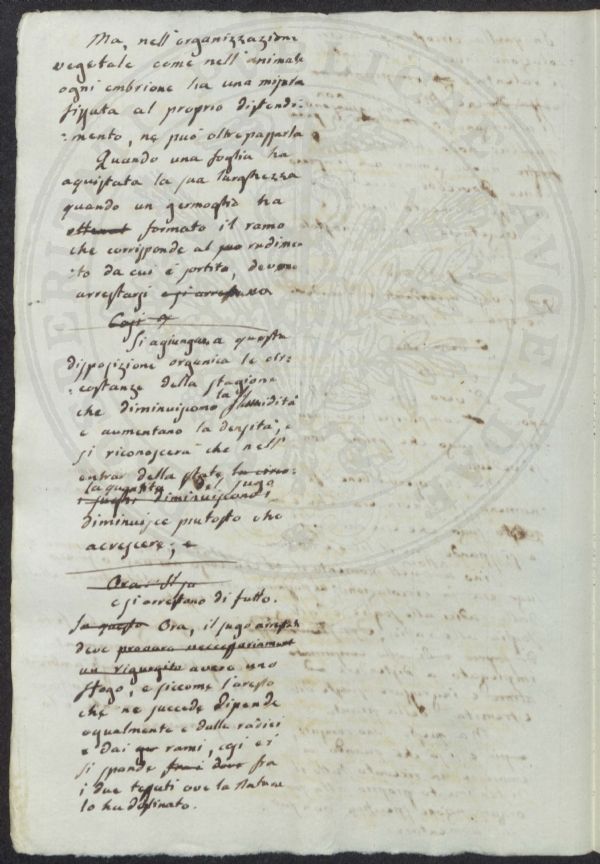 Ma, nell'organizzazione
vegetale come nell'animale
ogni embrione ha una misura
fissata al proprio distendi-
:mento, ne può oltrepassarla
Quando una foglia ha
aquistata la sua larghezza
quando un germoglio ha
formato il ramo
che corrisponde al suo rudimen
:to da cui è sortito, devono
arrestarsi e si arrestano
Cosi
Si agiungano a questa
disposizione organica le cir:
:costanze della stagione
che diminuiscono la fluidità
e aumentano la densità, e
si riconoscerà che nell'
entrar della state le circo:
la quantità del sugo
i sughi diminuiscono
diminuisce piutosto che
acrescere; e
Ora il su
e si arrestano di fatto.
In questo Ora, il sugo
deve provare neccessariamente
un rigurgito avere uno
sfogo, e siccome l'aresto
che ne succede dipende
egualmente e dalle radici
e dai rami, egi ei
si spande fra i dove fra
i due tessuti ove la Natura
lo ha destinato.